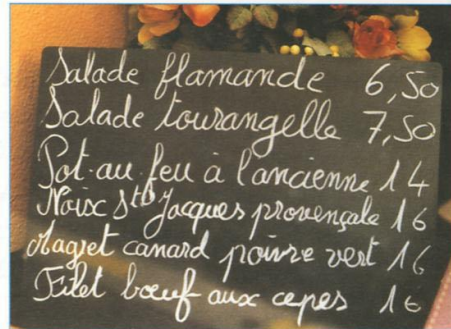 Salade flamande 6,50
Salade tourangelle 7,50
Pot-au-feu à l'ancienne 14
Noix Stes Jacques provençale 16
Magret canard poivre vert 16
Filet bœuf aux cepes 16